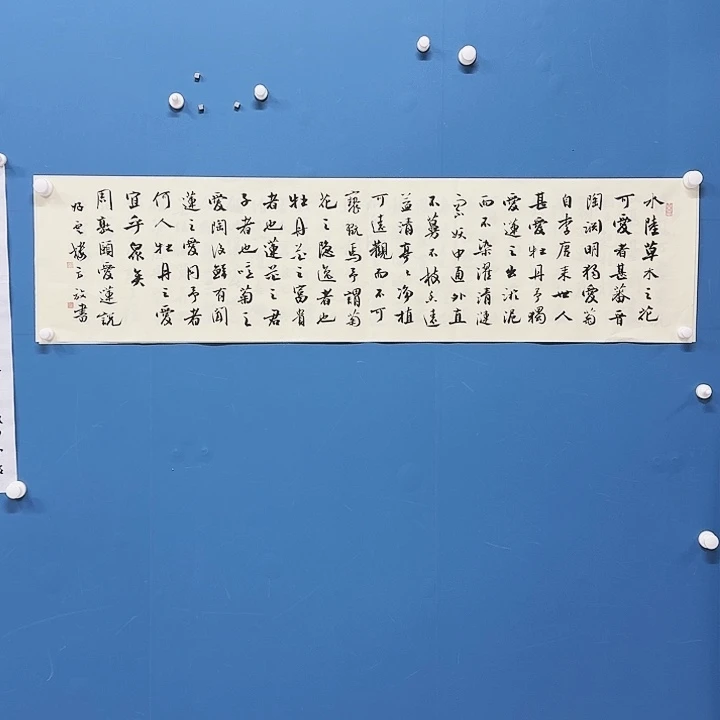 水陸草木之花
可愛者甚蕃晉
陶淵明獨愛菊
自李唐来世人
甚愛牡丹予獨
愛蓮之出淤泥
而不染濯清漣
而不妖中通外直
不蔓不枝香遠
益清亭〻净植
可遠觀而不可
褻翫焉予謂菊
花之隐逸者也
牡丹花之富貴
者也蓮花之君
子者也噫菊之
愛陶後鮮有聞
蓮之愛同予者
何人牡丹之愛
宜乎眾矣
周敦頤愛蓮説
書